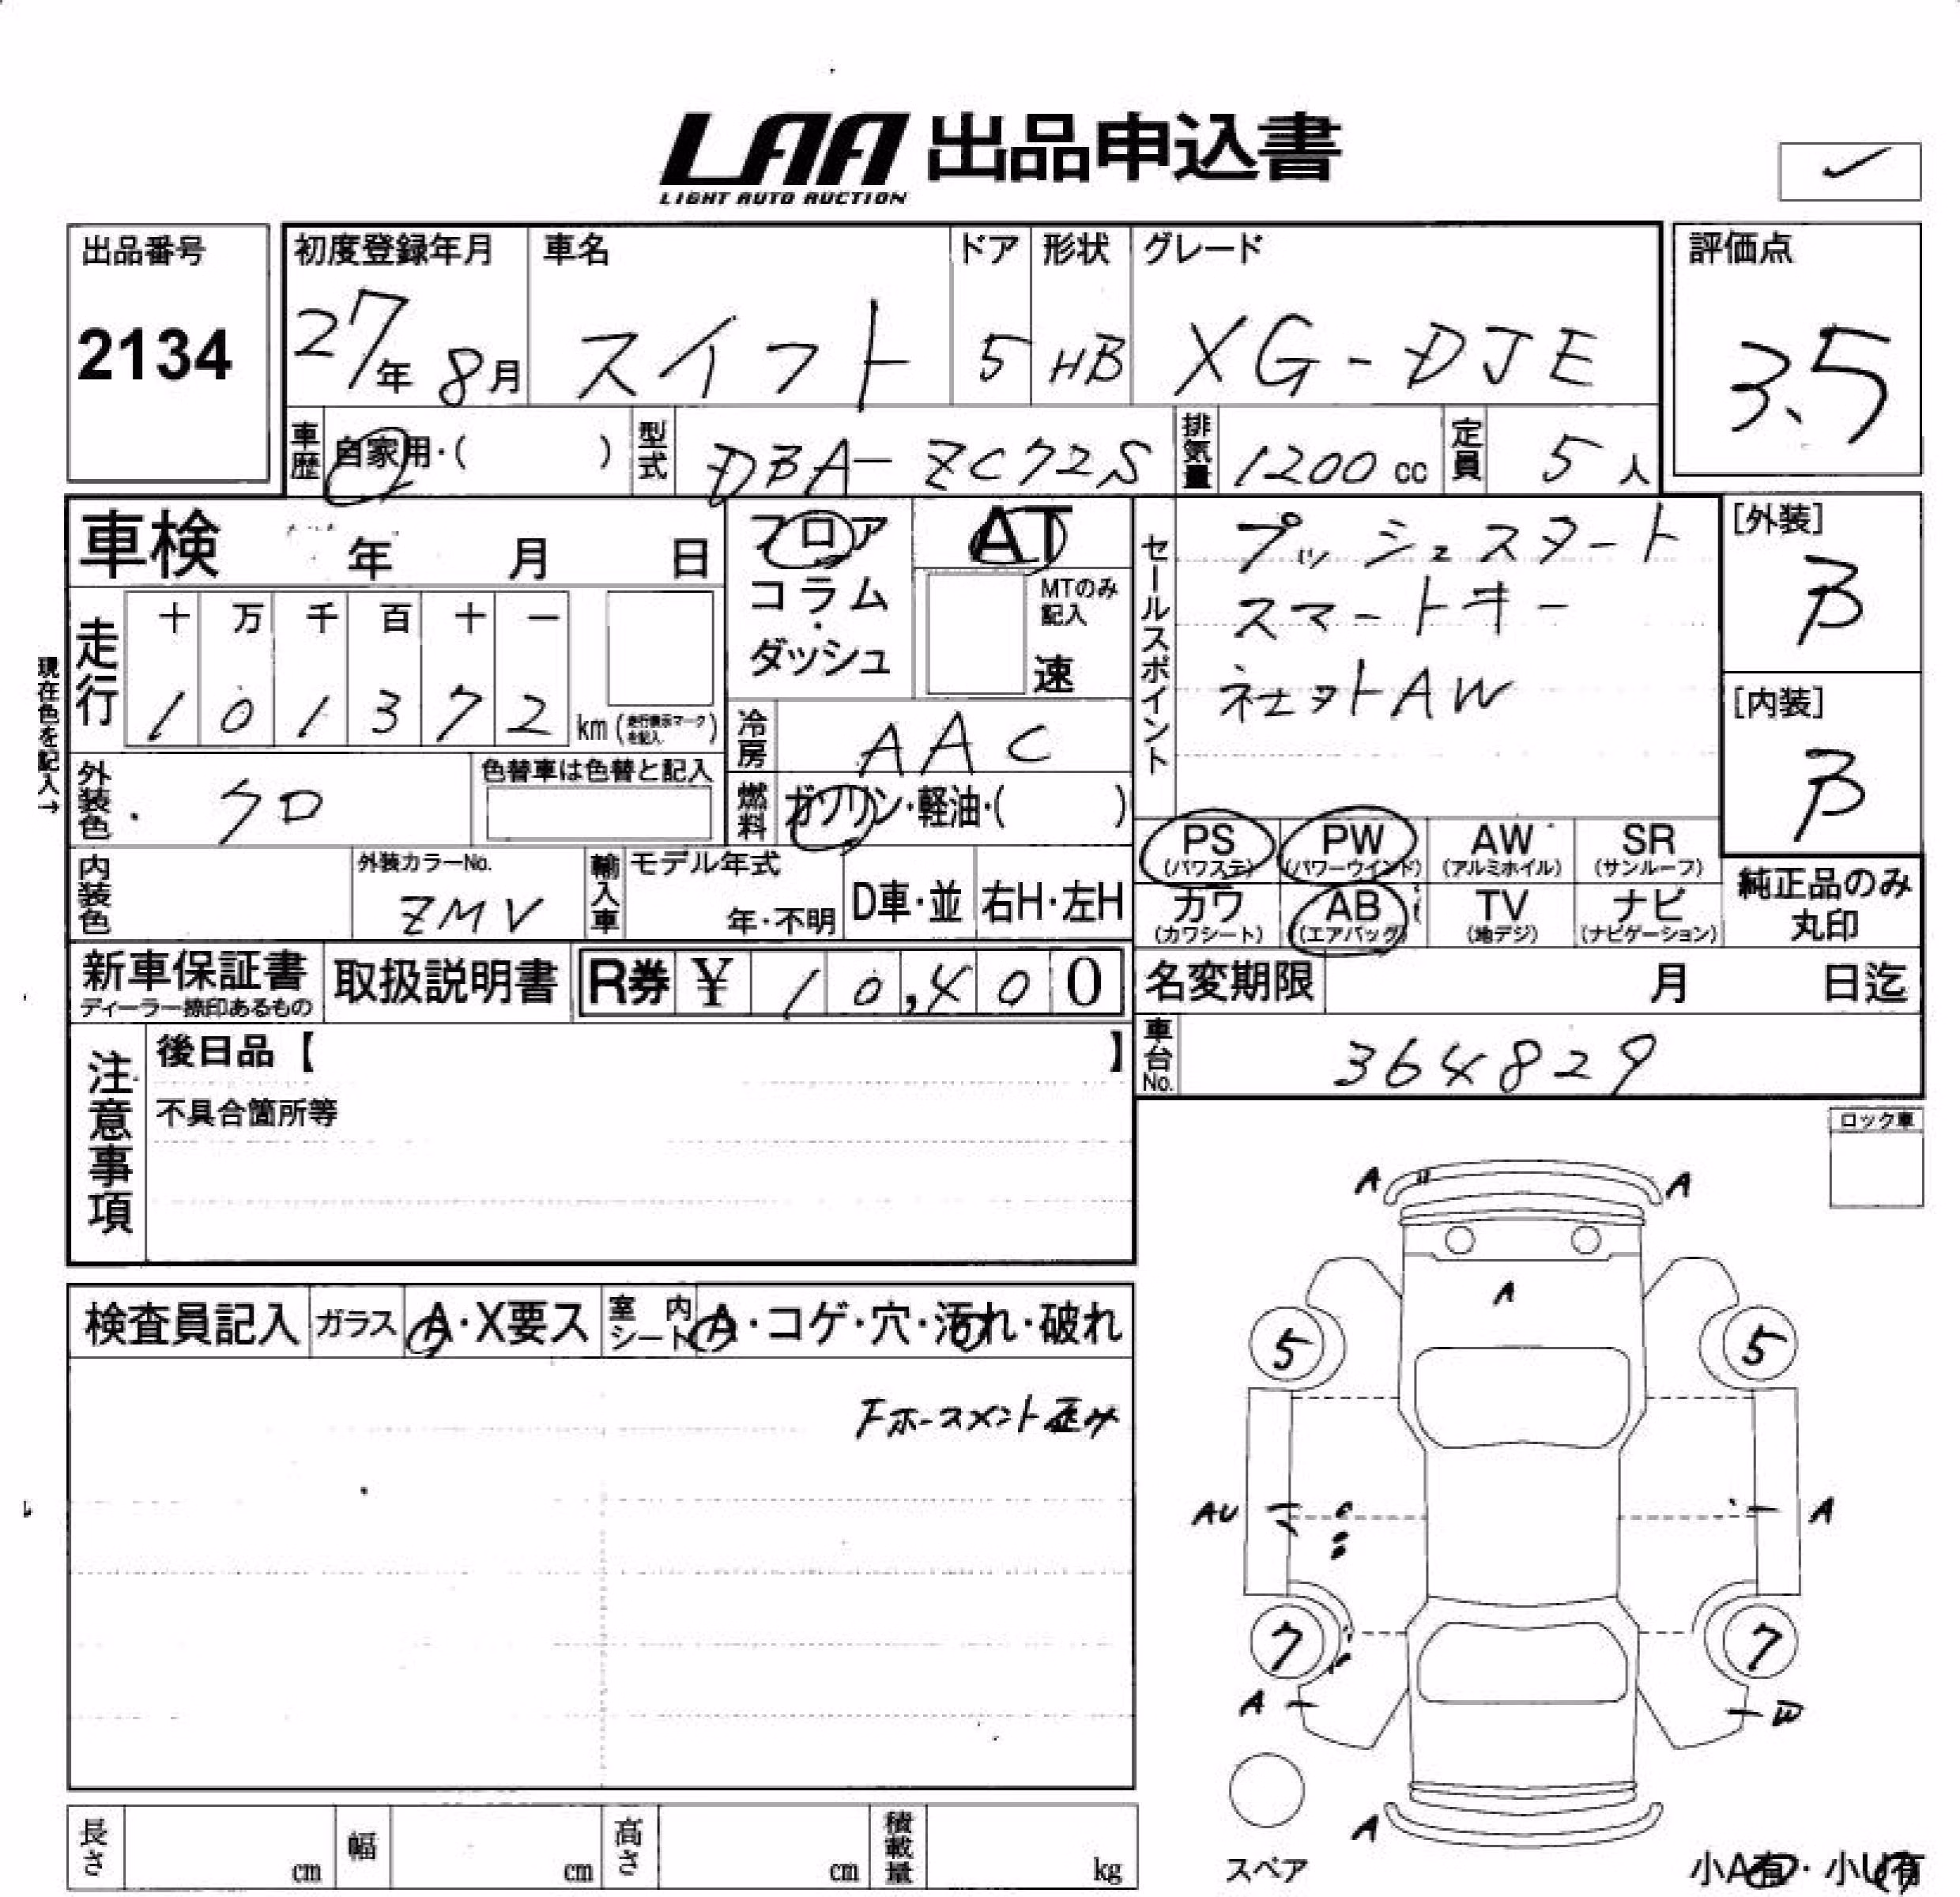 LAA 出品申込書
LIGHT AUTO AUCTION
✓
出品番号
2134
初度登録年月
27年 8月
車名
スイフト
ドア
5
形状
HB
グレード
XG-DJE
評価点
3.5
車歴 自家用・( )
型式 DBA-ZC72S
排気量 1200 cc
定員 5人
車検 年 月 日
フロア
コラム・
ダッシュ
AT
MTのみ記入
速
セールスポイント
プッシュスタート
スマートキー
社外AW
[外装]
B
[内装]
B
現在色を記入→
走行
十 万 千 百 十 一
1 0 1 3 7 2 km (走行表示マークを記入)
冷房 AAC
外装色 クロ
色替車は色替と記入
燃料 ガソリン・軽油・( )
PS (パワステ)
PW (パワーウインド)
AW (アルミホイル)
SR (サンルーフ)
内装色
外装カラーNo.
ZMV
輸入車
モデル年式
年・不明
D車・並
右H・左H
カワ (カワシート)
AB (エアバッグ)
TV (地デジ)
ナビ (ナビゲーション)
純正品のみ
丸印
新車保証書
ディーラー捺印あるもの
取扱説明書
R券 ¥ 10,400
名変期限 月 日迄
注意事項
後日品【 】
不具合箇所等
車台No. 364829
ロック車
検査員記入
ガラス A・X要ス
室内シート A・コゲ・穴・汚れ・破れ
Fホースメント歪み
A A
A
5 5
AU A
7 7
A
A
スペア
小A有・小U有
長さ cm
幅 cm
高さ cm
積載量 kg